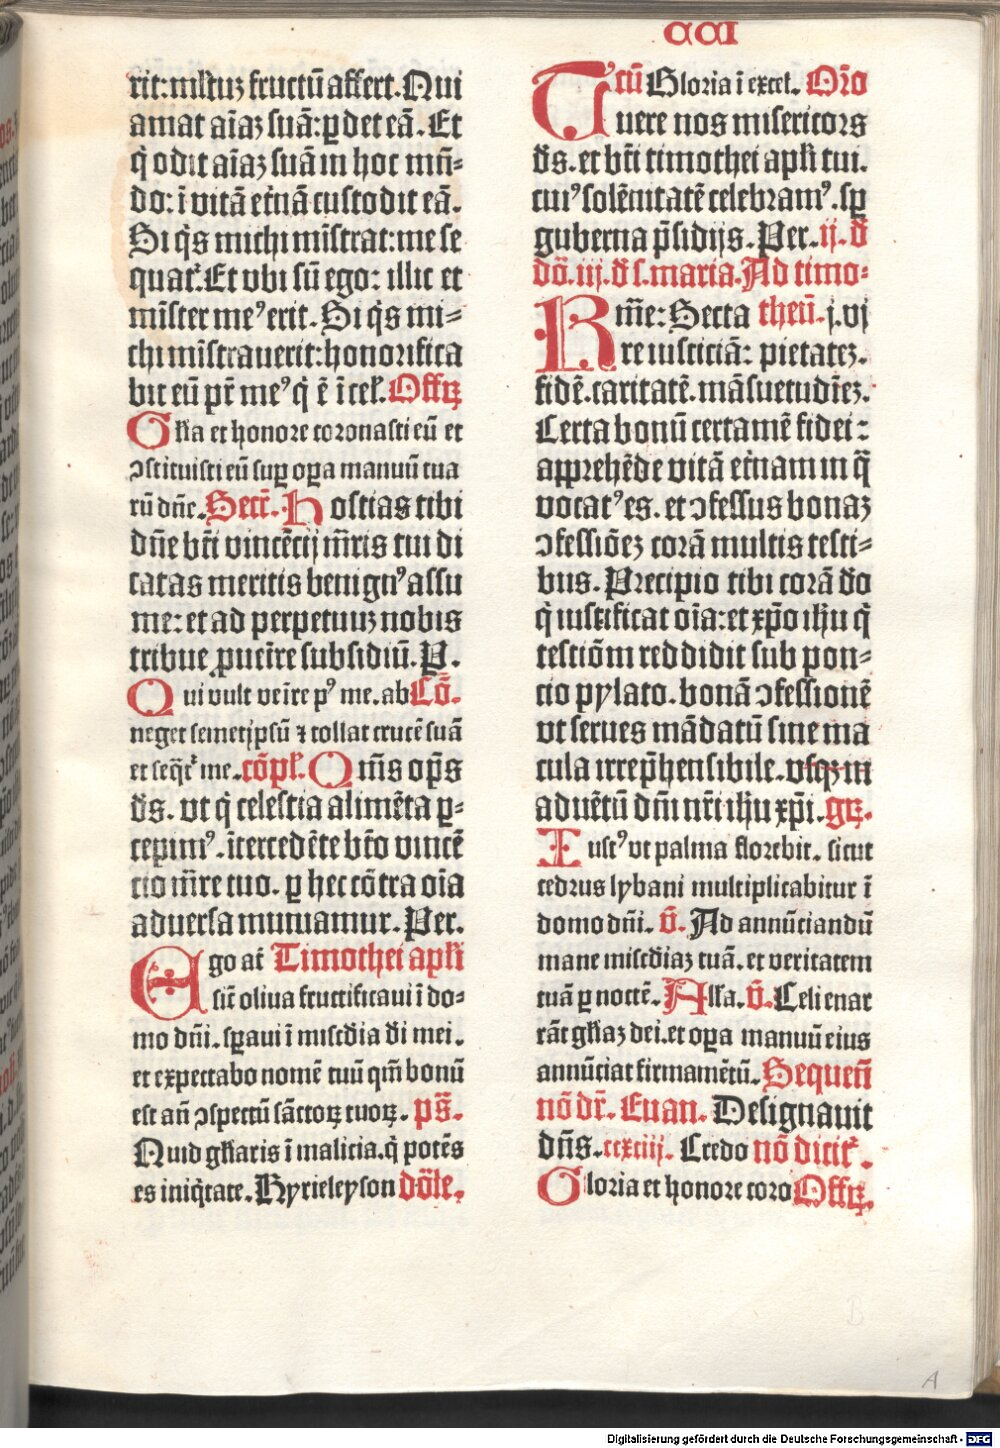 CCI
rit: mĺtuz fructū affert. Qui
amat aīaz suā: ꝑdet eā. Et
q̇ odit aīaz suā in hoc mū-
do: ī vitā et̄nā custodit eā.
Si q̇s michi mīstrat: me se
quat᷑. Et vbi sū ego: illic et
mīster meꝰ erit. Si q̇s mi-
chi mīstrauerit: honorifica
bit eū pr̄ meꝰ q̇ ē ī cel̄. Offꝝ
Gl̄ia et honore coronasti eū et
ɔstituisti eū suꝑ oꝑa manuū tua
rū dn̄e. Secr̄. Hostias tibi
dn̄e bt̄i vincēcij mr̄is tui di
catas meritis benignꝰ assu
me: et ad perpetuuz nobis
tribue ꝓuen̄re subsidiū. P.
Qui vult ven̄re pꝰ me. ab Cō.
neget semetip̄sū ⁊ tollat crucē suā
et seq̄t᷑ me. cōpl̄. Q m̄s op̄s
d̄s. vt q̇ celestia alimēta ꝑ-
cepimꝰ. ītercedēte bt̄o vincē
cio mr̄e tuo. ꝑ hec cōtra oīa
aduersa muniamur. Per.
Ego at̄ Timothei apl̄i
sic̄ oliua fructificaui ī do-
mo dn̄i. sꝑaui ī misc̄dia d̄i mei.
et expectabo nomē tuū qm̄ bonū
est an̄ ɔspectū sāctoꝝ tuoꝝ. ps̄.
Quid gl̄iaris ī malicia. q̇ potēs
es iniq̇tate. Kyrieleyson dōīe.
Tcū Gloria ī excel. Oro
uere nos misericors
d̄s. et bt̄i timothei apl̄i tui.
cuiꝰ solēnitatē celebramꝰ. sꝑ
guberna p̄sidijs. Per. ij. d̄
dō. iij. d̄ s. maria. Ad timo-
Rm̄e: Secta theū. j. vj
re iusticiā: pietatez.
fidē. caritatē. māsuetudīez.
Certa bonū certamē fidei:
apprehēde vitā et̄nam in q̄
vocatꝰ es. et ɔfessus bonaz
ɔfessiōez corā multis testi-
bus. Precipio tibi corā d̄o
q̇ iustificat oīa: et xp̄o ihu q̇
testiōm reddidit sub pon-
cio pylato. bonā ɔfessionē
vt serues mādatū sine ma
cula irrep̄hensibile. vsqꝫ in
aduētū dn̄i nr̄i ihu xp̄i. gꝝ.
Iustꝰ vt palma florebit. sicut
cedrus lybani multiplicabitur ī
domo dn̄i. v̄. Ad annūciandū
mane misc̄diaz tuā. et veritatem
tuā ꝑ noctē. All̄a. v̄. Celi enar
rāt gl̄iaz dei. et oꝑa manuū eius
annūciat firmamētū. Sequen̄
nō dr̄. Euan. Designauit
dn̄s. ccxciij. Credo nō dicit᷑.
Gloria et honore coro Offꝝ.
B
A
Digitalisierung gefördert durch die Deutsche Forschungsgemeinschaft - DFG